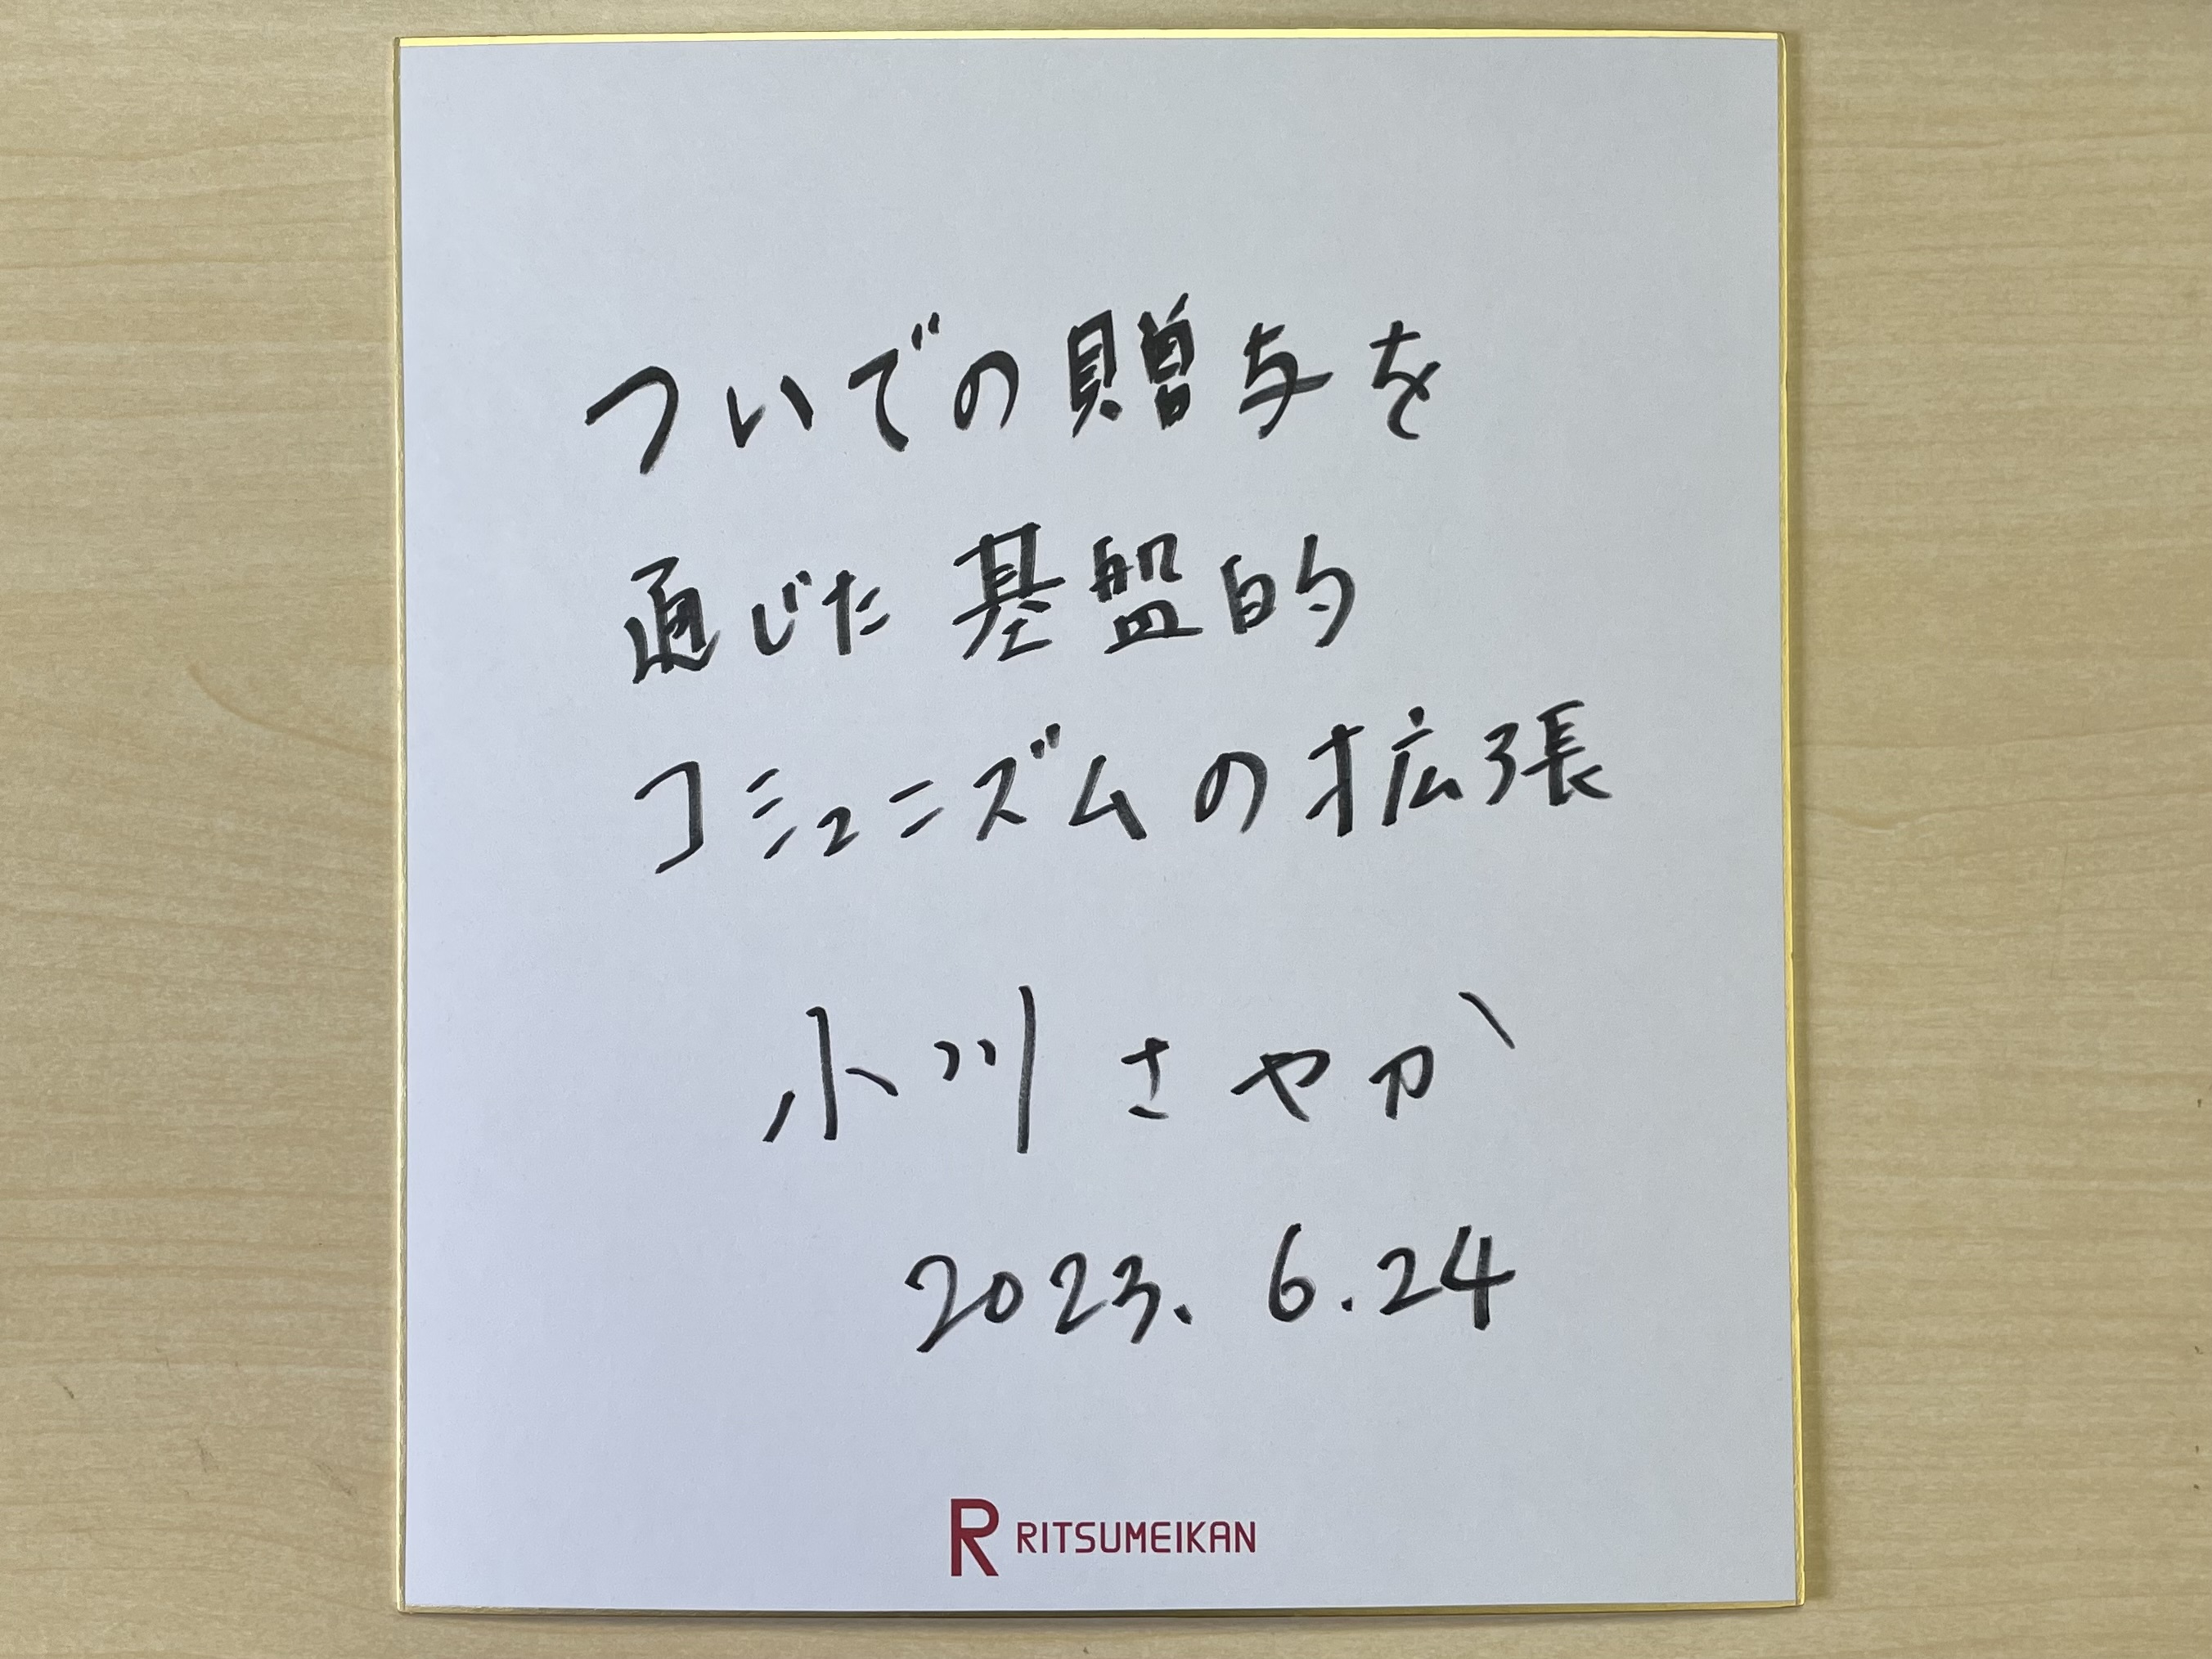 ついでの贈与を
通じた基盤的
コミュニズムの拡張
小川さやか
2023. 6.24
R RITSUMEIKAN